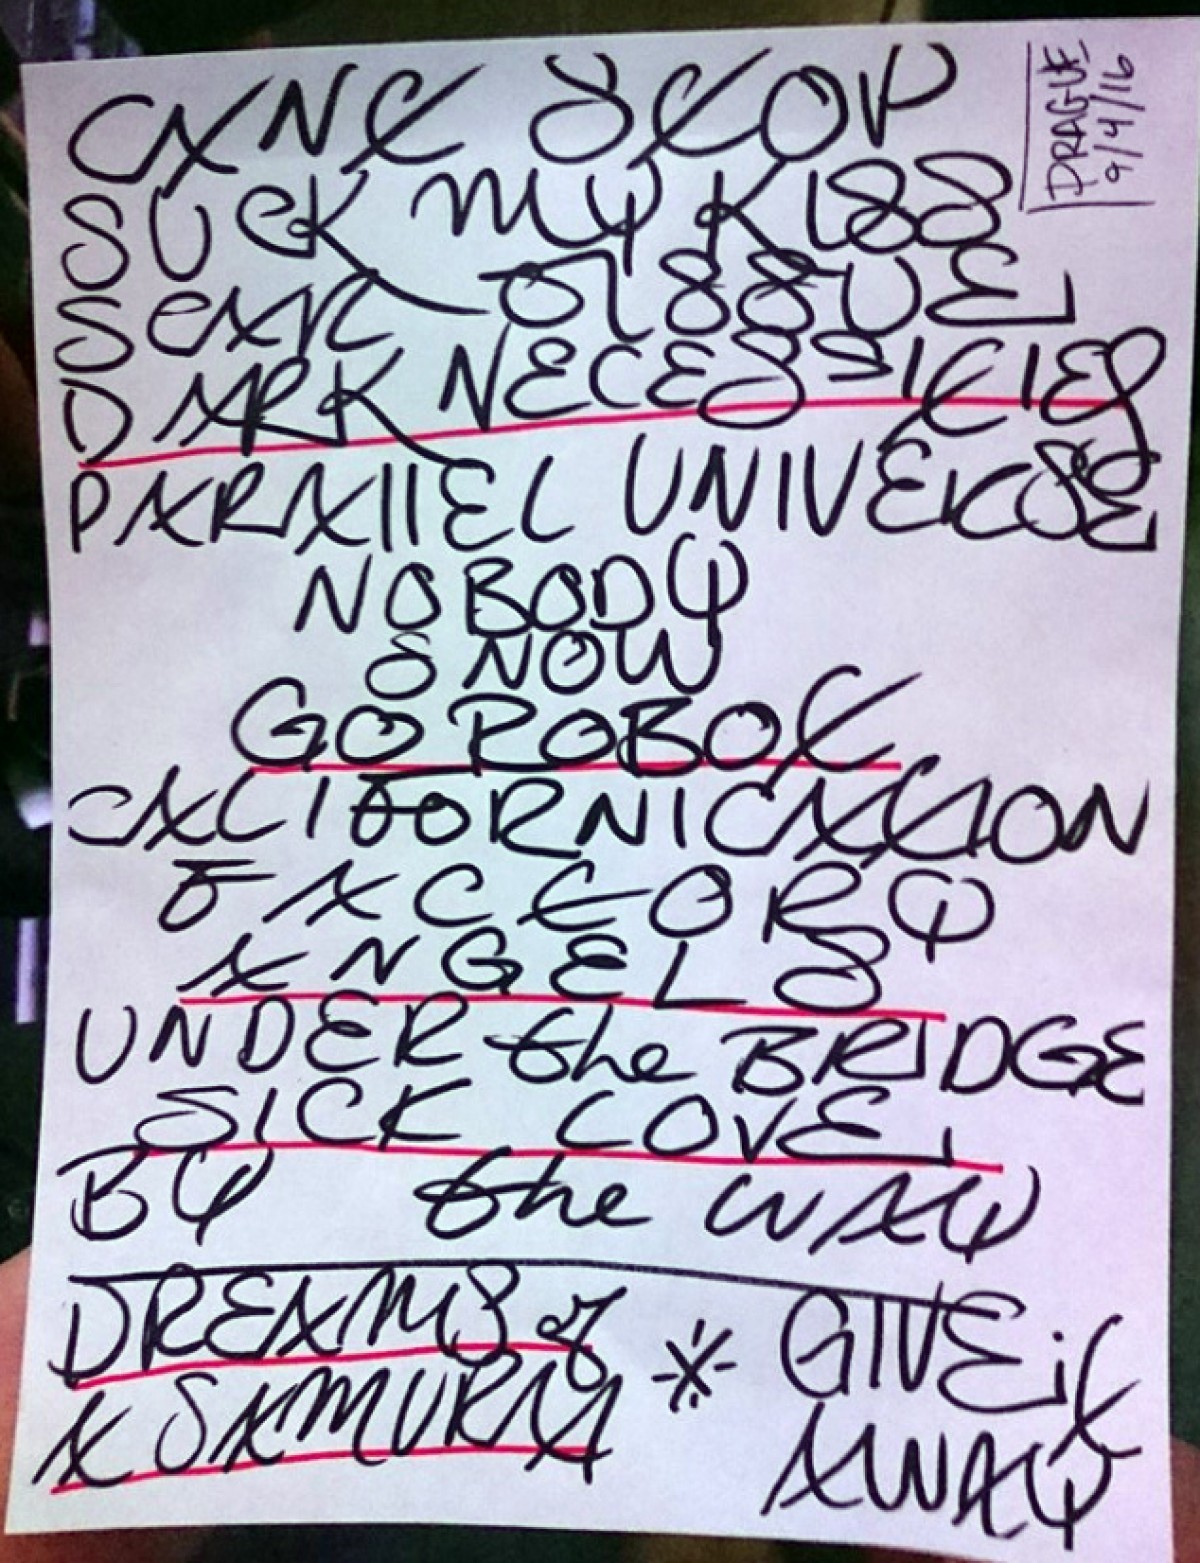 CAN'T STOP
PRAGUE
9/4/16
SUCK MY KISS
SCAR TISSUE
DARK NECESSITIES
PARAllEL UNIVERSE
NOBODY
SNOW
GO ROBOT
CALIFORNICATION
FACTORY
ANGELS
UNDER the BRIDGE
SICK LOVE
BY the WAY
DREAMS of
A SAMURAI
* GIVE it
AWAY